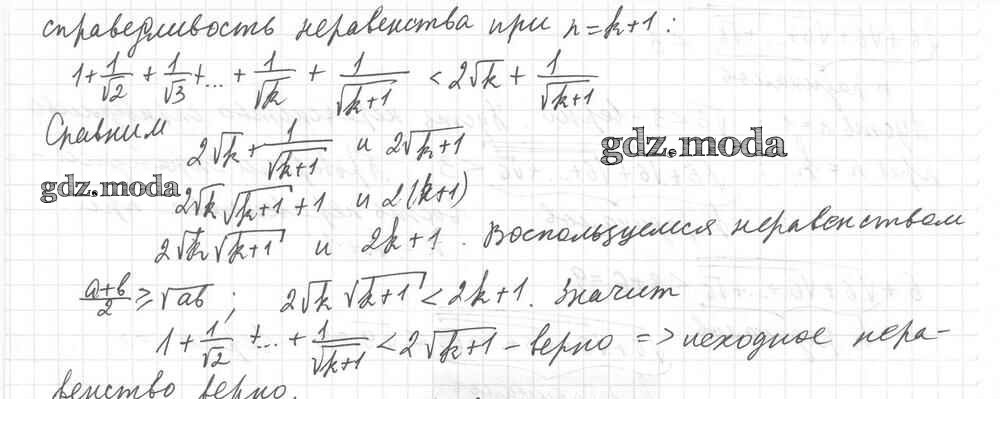 справедливость неравенства при n=k+1:
1+1/√2 + 1/√3 +...+ 1/√k + 1/√(k+1) < 2√k + 1/√(k+1)
Сравним 2√k + 1/√(k+1) и 2√(k+1)
gdz.moda
gdz.moda
2√k √(k+1) + 1 и 2(k+1)
2√k √(k+1) и 2k+1. Воспользуемся неравенством
(a+b)/2 ≥ √ab; 2√k √(k+1) < 2k+1. Значит
1+1/√2 +...+ 1/√(k+1) < 2√(k+1) – верно => исходное нера-
венство верно.